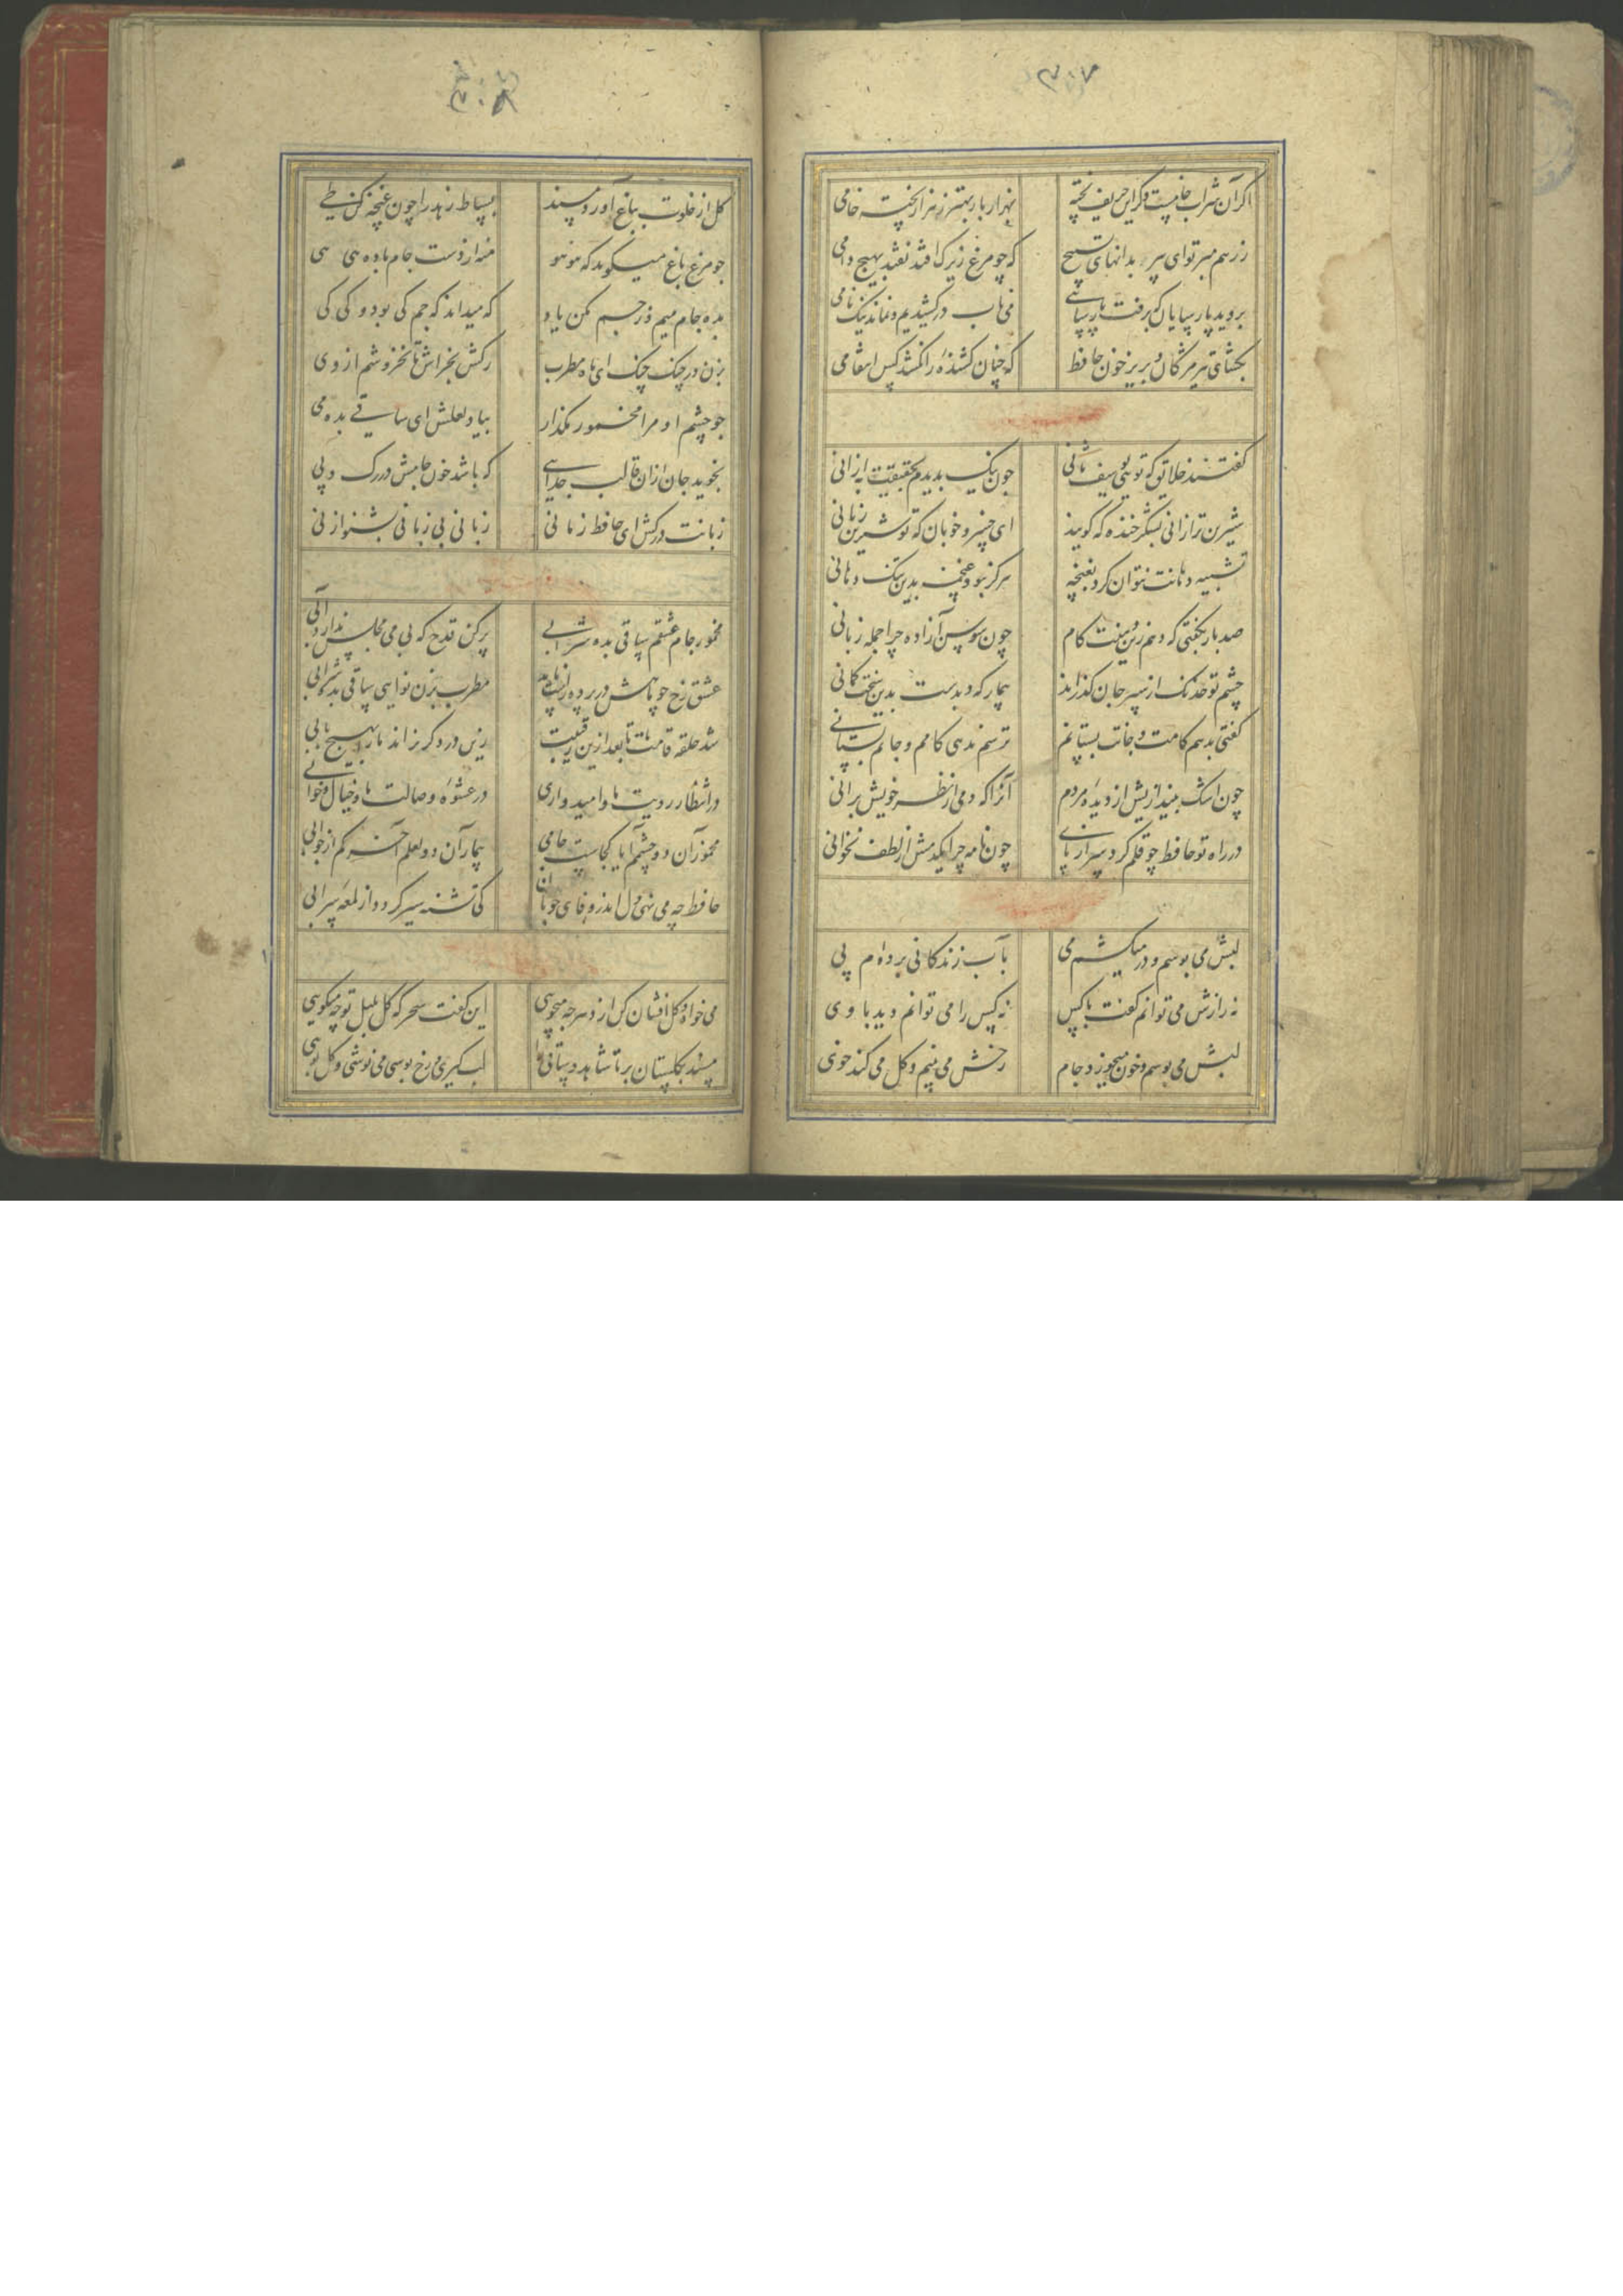 ۳۰۷
اگر آن شراب خامست وگر این حریف پخته
بهزار بار بهتر ز هزار پخته خامی
ز رهم مبر تو ای پیر بدانهای تسبیح
که چو مرغ زیرک افتد نفتد بهیچ دامی
بروید پارسایان که برفت پارسایی
می ناب درکشیدیم و نماند نیک نامی
بگشای تیر مژگان و بریز خون حافظ
که چنان کشنده را نکشد کس انتقامی
گفتند خلایق که تویی یوسف ثانی
چون نیک بدیدم بحقیقت به ازانی
شیرین تر ازانی بشکر خنده که گویند
ای خسرو خوبان که تو شیرین زمانی
تشبیه دهانت نتوان کرد بغنچه
هرگز نبود غنچه بدین تنگ دهانی
صد بار بگفتی که دهم زین دهنت کام
چون سوسن آزاده چرا جمله زبانی
چشم تو خدنک از سپر جان گذراند
بیمار که دیدست بدین سخت کمانی
گفتی بدهم کامت و جانت بستانم
ترسم ندهی کامم و جانم بستانی
چون اشک بیندازیش از دیده مردم
آنرا که دمی از نظر خویش برانی
در راه تو حافظ چو قلم کرد سر از پای
چون نامه چرا یکدمش از لطف نخوانی
لبش می بوسم و در میکشم می
بآب زندگانی برده ام پی
نه رازش می توانم گفت باکس
نه کس را می توانم دید با وی
لبش می بوسم و خون میخورد جام
رخش می بینم و گل می کند خوی
۳۰۸
گل از خلوت بباغ آورد مسند
بساط زهد را چون غنچه کن طی
چو مرغ باغ میگوید که هو هو
منه از دست جام باده هی هی
بده جام میم وز جم مکن یاد
که میداند که جم کی بود و کی کی
بزن در چنک چنک ای ماه مطرب
رگش بخراش تا بخروشم از وی
چو چشم او مرا مخمور مگذار
بیاد لعلش ای ساقی بده می
نجوید جان ازان قالب جدایی
که باشد خون جامش در رگ و پی
زبانت درکش ای حافظ زمانی
زبانی بی زبانی بشنو از نی
مخمور جام عشقم ساقی بده شرابی
پر کن قدح که بی می مجلس ندارد آبی
عشق رخ چو ماهش در پرده راست ناید
مطرب بزن نوایی ساقی بده شرابی
شد حلقه قامت ما تا بعد ازین رقیبت
زین در دگر نراند ما را بهیچ بابی
در انتظار رویت ما و امیدواری
در عشوه وصالت ما و خیال و خوابی
مخمور آن دو چشمم آیا کجاست جامی
بیمار آن دو لعلم آخر کم از جوابی
حافظ چه می نهی دل اندر وفای خوبان
کی تشنه سیر گردد از لمعه سرابی
می خواه و گل افشان کن از دهر چه میجویی
این گفت سحرگه گل بلبل تو چه میگویی
مسند بگلستان بر تا شاهد و ساقی را
لب گیری و رخ بوسی می نوشی و گل بویی